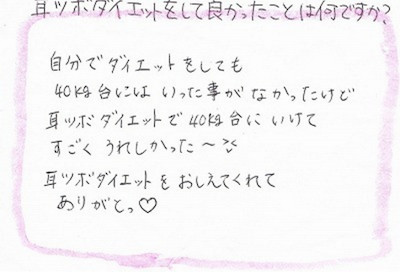 耳ツボダイエットをして良かったことは何ですか?
自分でダイエットをしても
40kg台にはいった事がなかったけど
耳ツボダイエットで40kg台にいけて
すごくうれしかった〜
耳ツボダイエットをおしえてくれて
ありがとっ♡